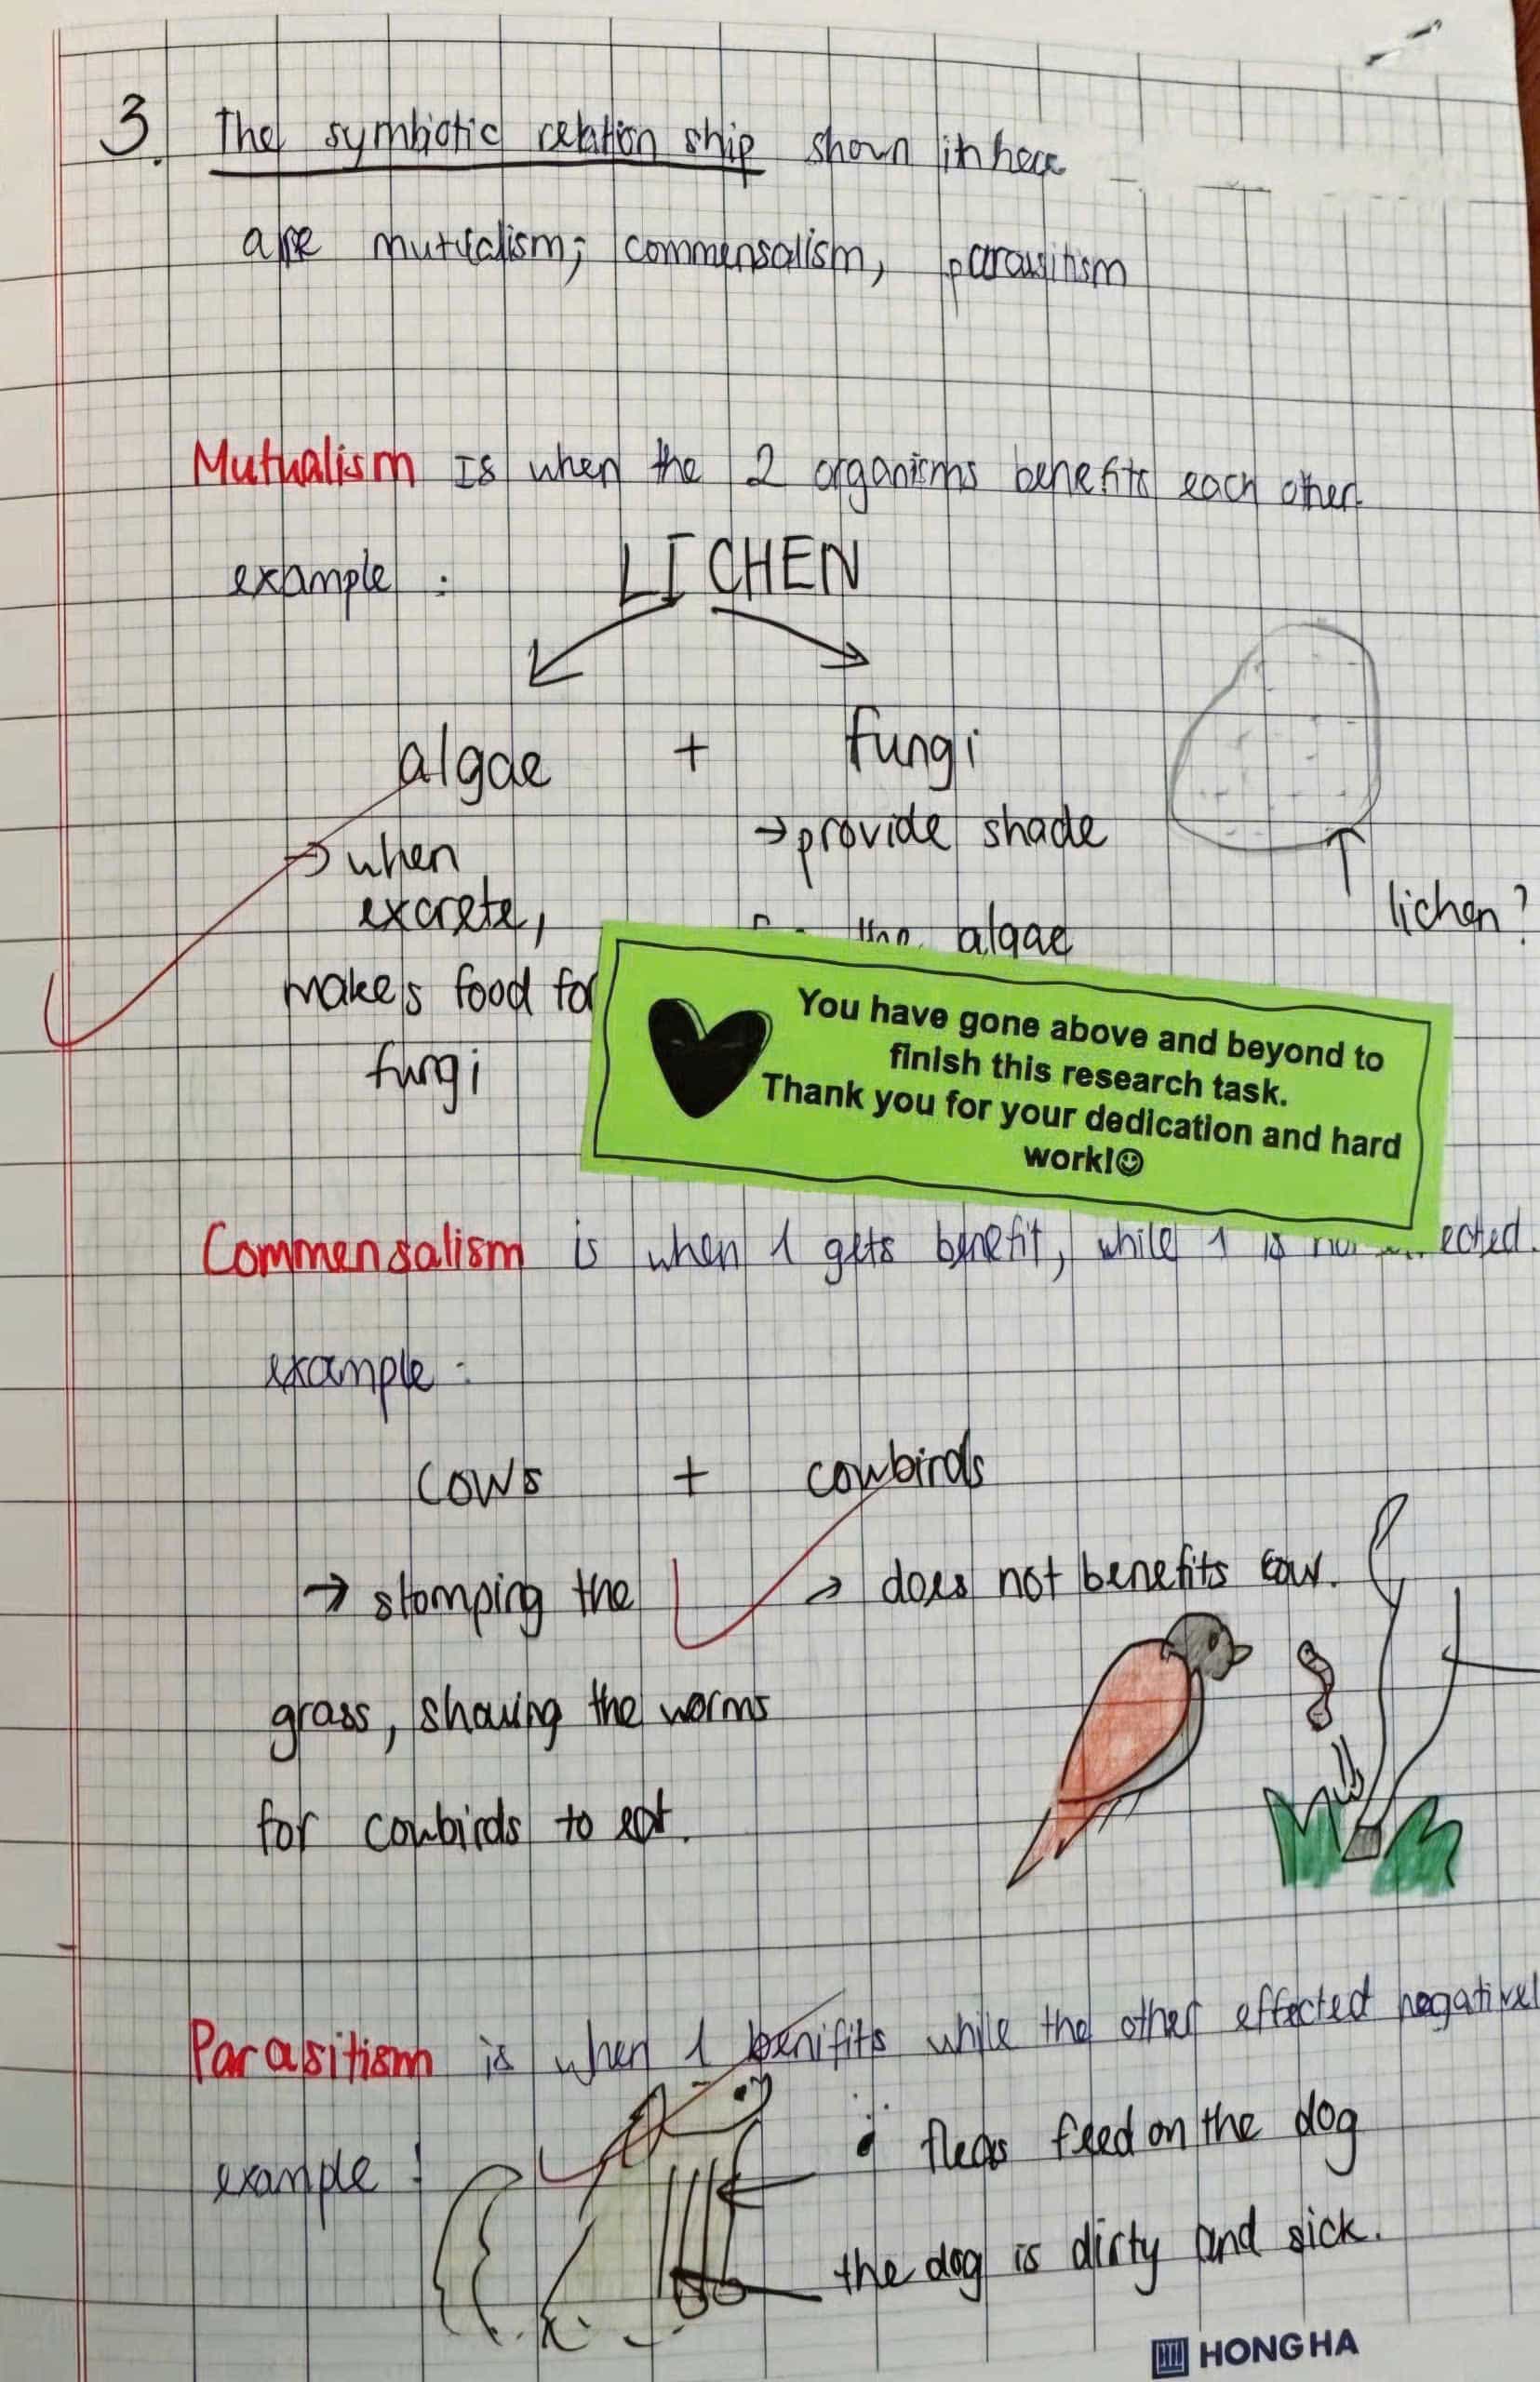 3. The symbiotic relation ship shown in here
are mutualism; commensalism, parasitism
Mutualism is when the 2 organisms benefits each other.
example :
LICHEN
algae + fungi
→ when
excrete,
makes food for
fungi
→ provide shade
the algae
lichen?
You have gone above and beyond to
finish this research task.
Thank you for your dedication and hard
work!☺
Commensalism is when 1 gets benefit, while 1 is
example :
cows + cowbirds
→ stomping the
grass, showing the worms
for cowbirds to eat.
→ does not benefits cow.
Parasitism is when 1 benifits while the other effected
example :
fleas feed on the dog
the dog is dirty and sick.
HONG HA